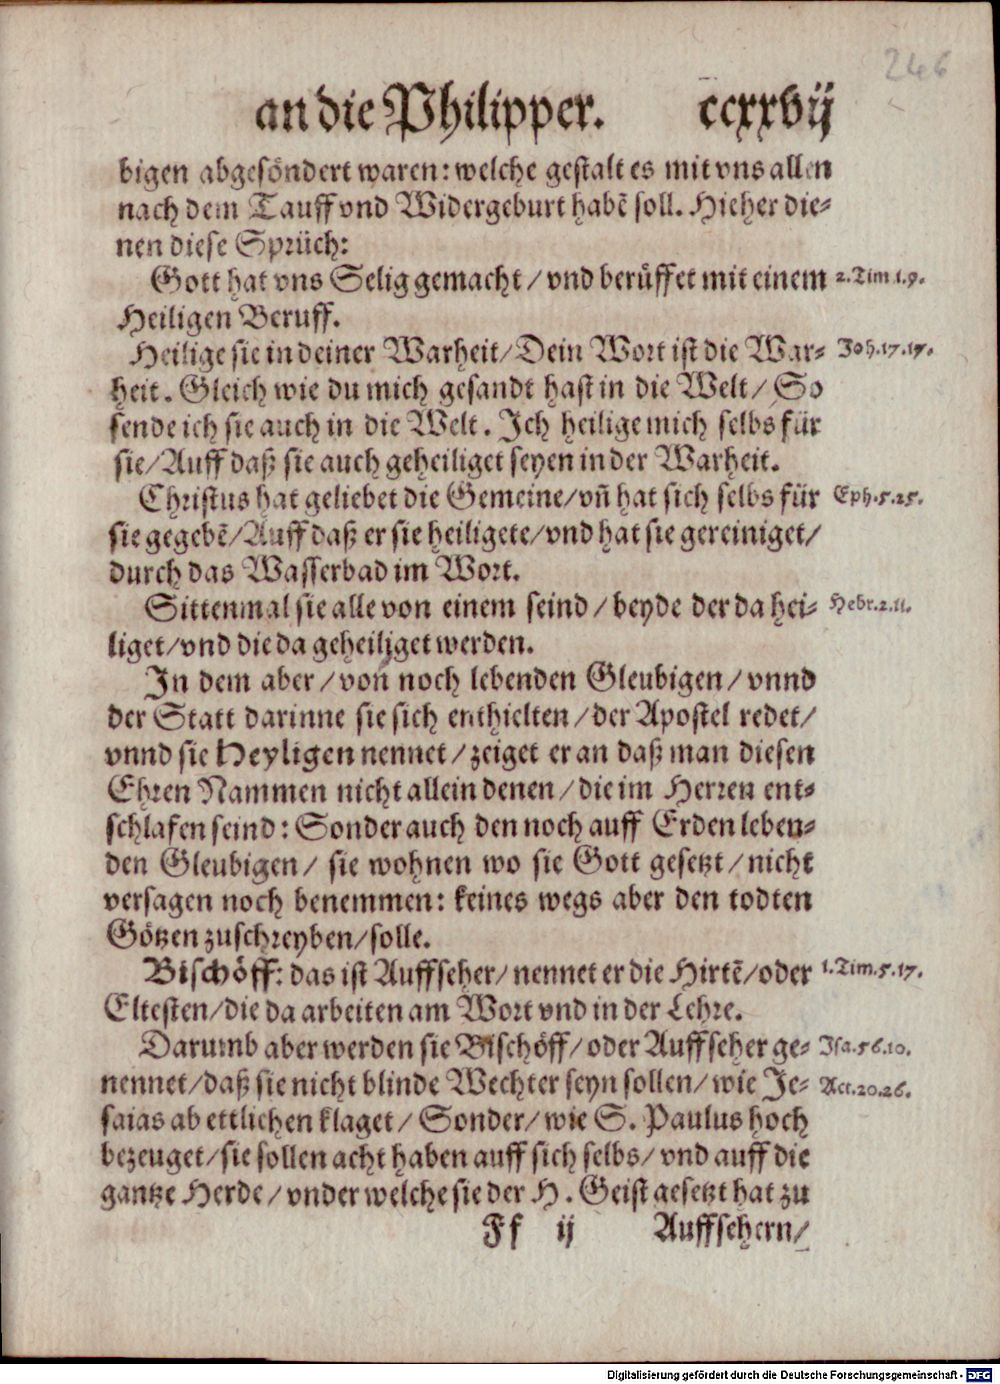 246
an die Philipper. ccxxvij
bigen abgesöndert waren: welche gestalt es mit vns allen
nach dem Tauff vnd Widergeburt habẽ soll. Hieher die-
nen diese Sprüch:
Gott hat vns Selig gemacht / vnd berüffet mit einem 2. Tim. 1. 9.
Heiligen Beruff.
Heilige sie in deiner Warheit / Dein Wort ist die War- Joh. 17. 17.
heit. Gleich wie du mich gesandt hast in die Welt / So
sende ich sie auch in die Welt. Ich heilige mich selbs für
sie / Auff daß sie auch geheiliget seyen in der Warheit.
Christus hat geliebet die Gemeine / vñ hat sich selbs für Eph. 5. 25.
sie gegebẽ / Auff daß er sie heiligete / vnd hat sie gereiniget /
durch das Wasserbad im Wort.
Sittenmal sie alle von einem seind / beyde der da hei- Hebr. 2. 11.
liget / vnd die da geheiliget werden.
In dem aber / von noch lebenden Gleubigen / vnnd
der Statt darinne sie sich enthielten / der Apostel redet /
vnnd sie Heyligen nennet / zeiget er an daß man diesen
Ehren Nammen nicht allein denen / die im Herren ent-
schlafen seind: Sonder auch den noch auff Erden leben-
den Gleubigen / sie wohnen wo sie Gott gesetzt / nicht
versagen noch benemmen: keines wegs aber den todten
Götzen zuschreyben / solle.
Bischöff: das ist Auffseher / nennet er die Hirtẽ / oder 1. Tim. 5. 17.
Eltesten / die da arbeiten am Wort vnd in der Lehre.
Darumb aber werden sie Bischöff / oder Auffseher ge- Isa. 56. 10.
nennet / daß sie nicht blinde Wechter seyn sollen / wie Je- Act. 20. 26.
saias ab ettlichen klaget / Sonder / wie S. Paulus hoch
bezeuget / sie sollen acht haben auff sich selbs / vnd auff die
gantze Herde / vnder welche sie der H. Geist gesetzt hat zu
Ff ij Auffsehern /
Digitalisierung gefördert durch die Deutsche Forschungsgemeinschaft - DFG